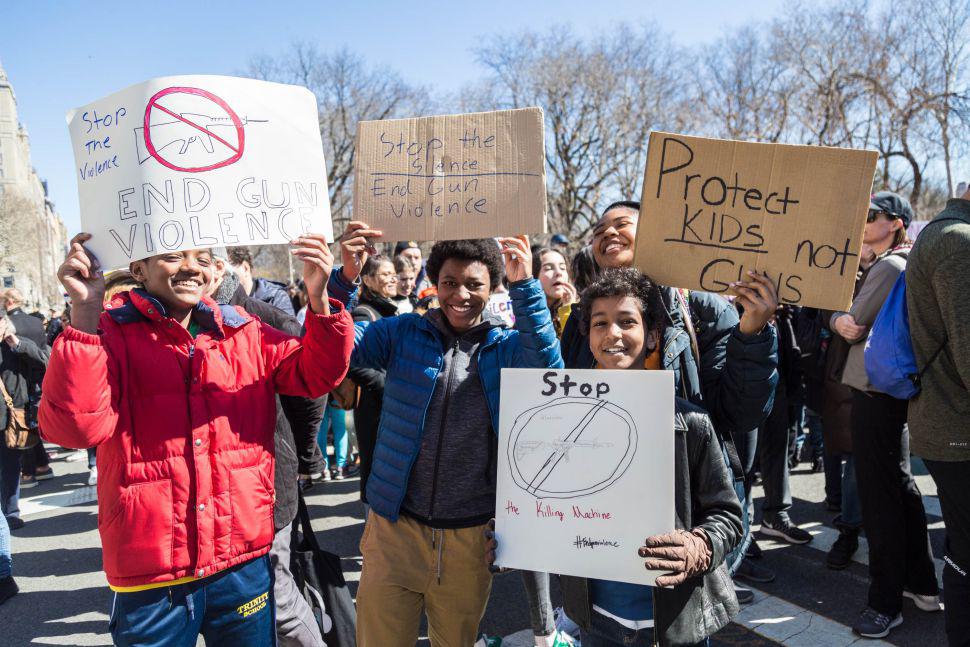 Stop
The
Violence
END GUN
VIOLENCE
Stop the
Silence
End Gun
Violence
Protect
KIDS not
Guns
Stop
the Killing Machine
TRINITY
SCHOOL